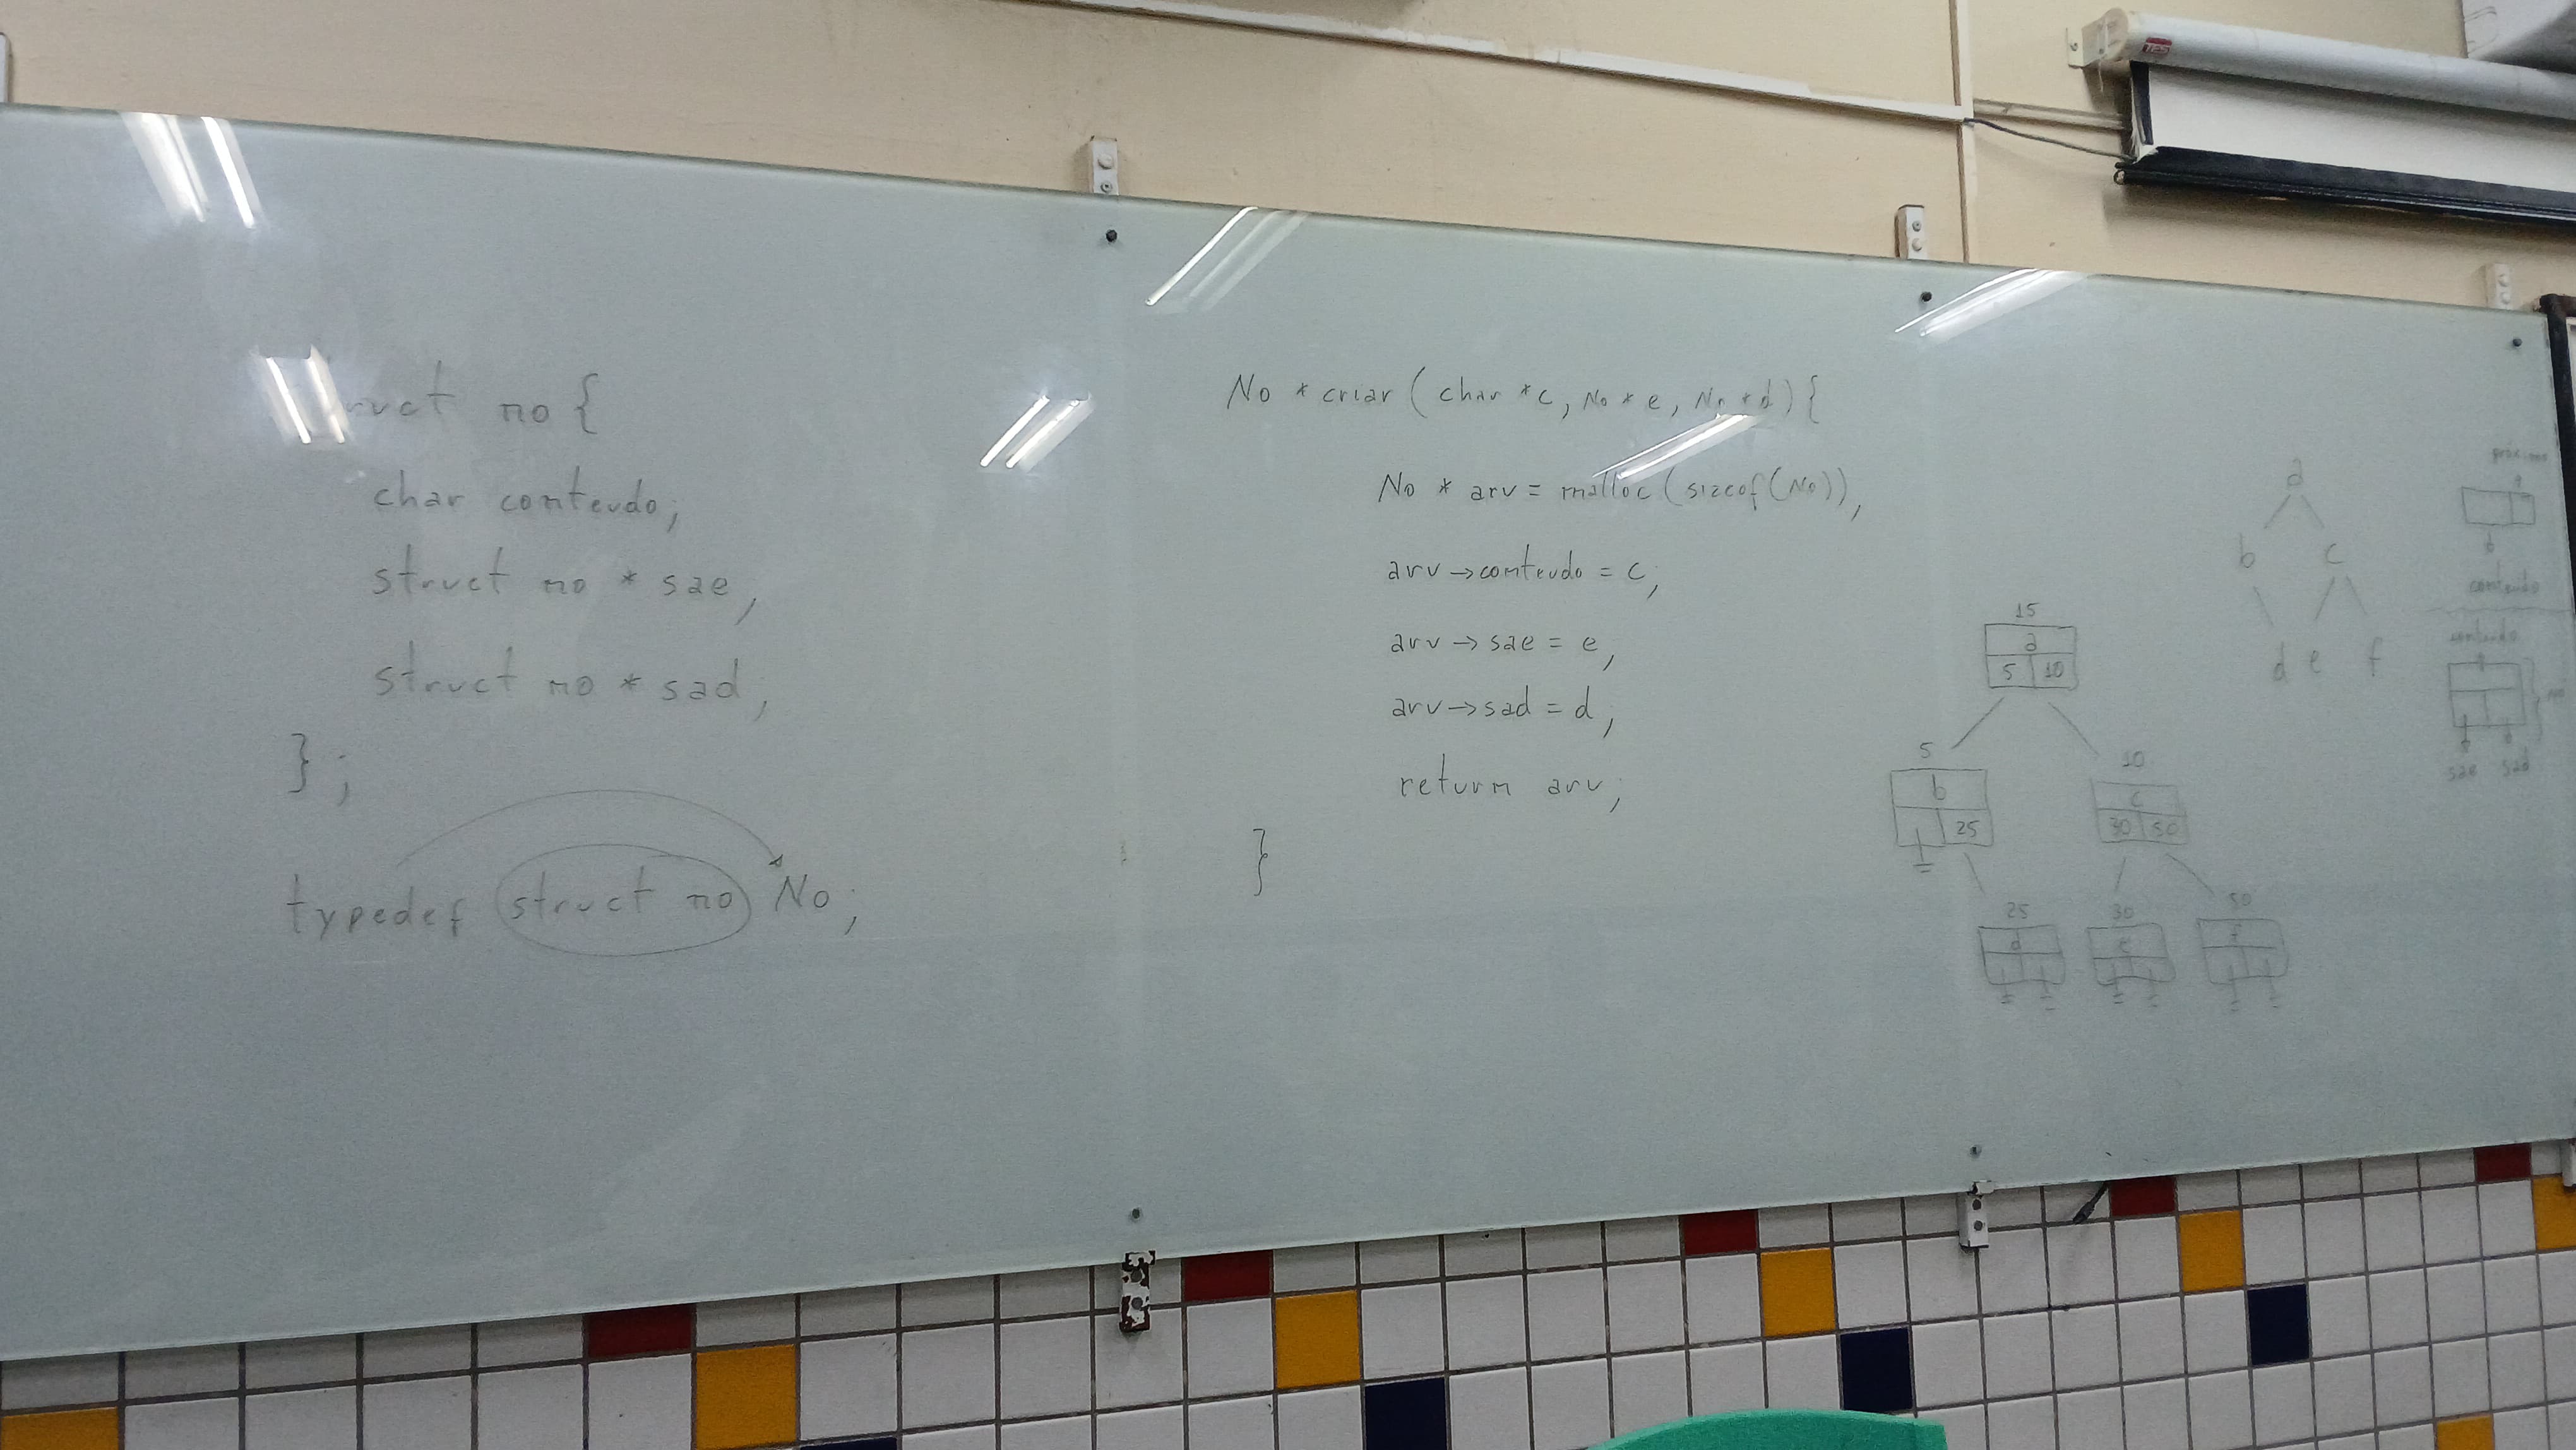 struct no {
char conteudo;
struct no * sae;
struct no * sad;
};
typedef struct no No;
No * criar (char *c, No * e, No * d) {
No * arv = malloc (sizeof(No));
arv → conteudo = c;
arv → sae = e;
arv → sad = d;
return arv;
}
15
a
5 10
5
b
25
10
c
30 50
25
d
30
e
50
f
a
b c
d e f
próximo
conteudo
conteudo
no
sae sad